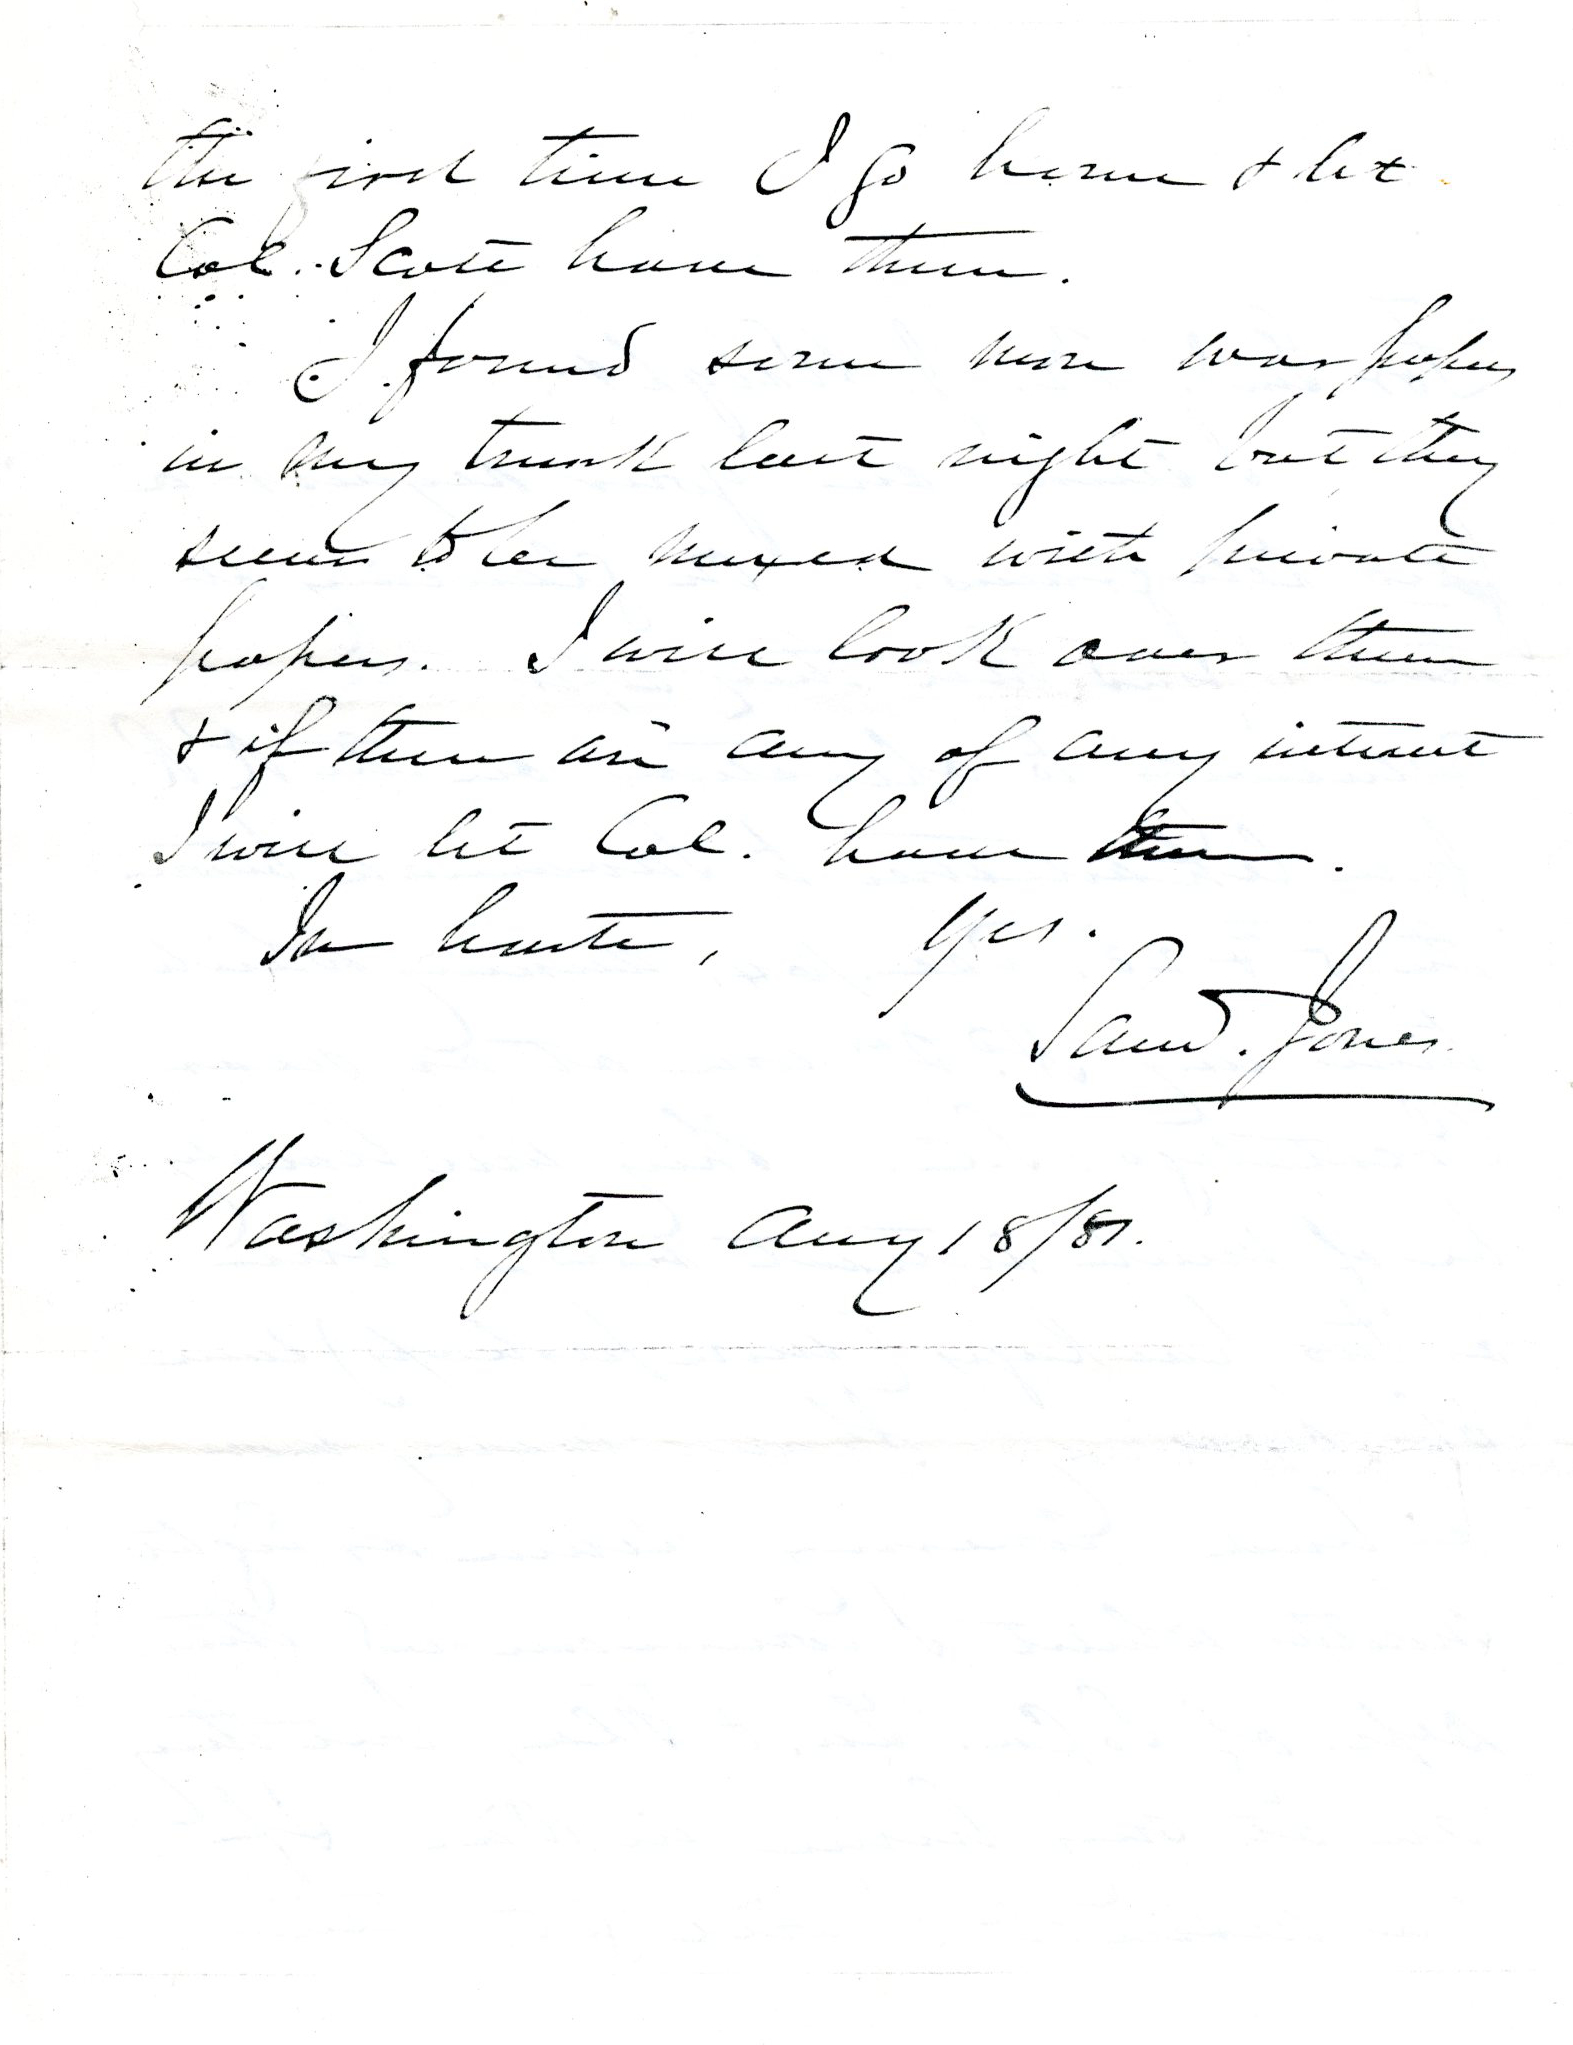 the first time I go home & let
Col. Scott have them.
I found some more war papers
in my trunk last night but they
seem to be mixed with private
papers. I will look over them
& if there are any of any interest
I will let Col. have them.
In haste, Yrs.
Saml. Jones
Washington Aug 18/81.